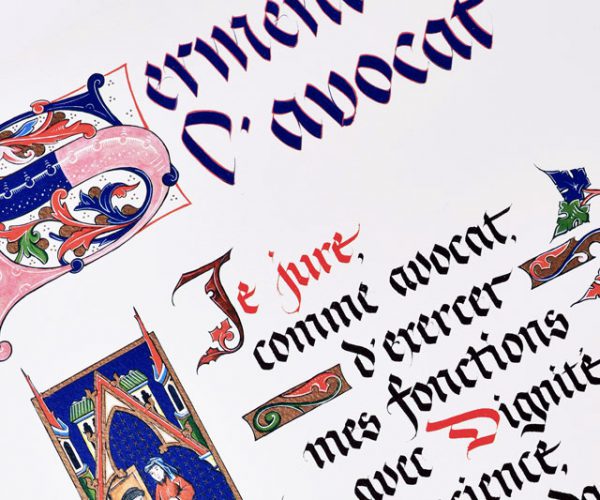 Serment
d'avocat
Je jure,
comme avocat,
d'exercer
mes fonctions
avec Dignité
ience,